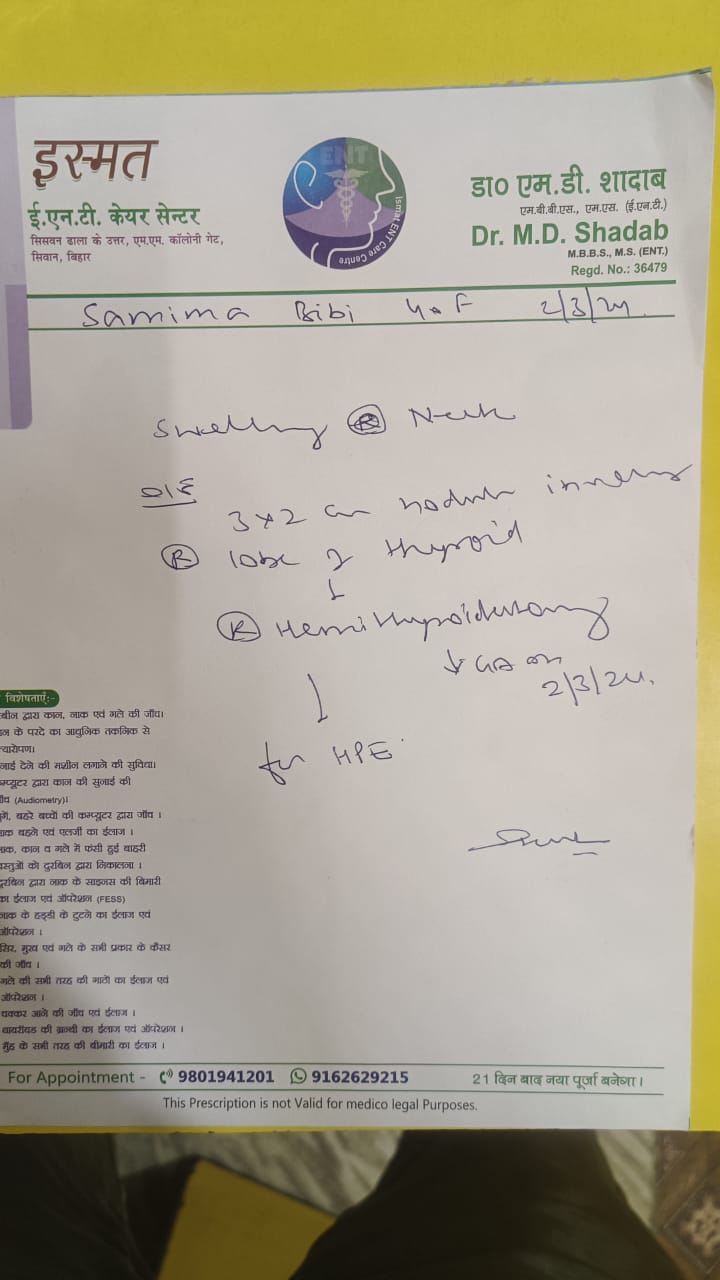 इस्मत
ई.एन.टी. केयर सेन्टर
सिसवन ढाला के उत्तर, एम.एम. कॉलोनी गेट,
सिवान, बिहार
ENT
Ismat ENT Care Centre
डा० एम.डी. शादाब
एम.बी.बी.एस., एम.एस. (ई.एन.टी.)
Dr. M.D. Shadab
M.B.B.S., M.S. (ENT.)
Regd. No.: 36479
Samima Bibi F 2/3/24
Swelling (R) Neck
O/E
3x2 cm nodule
(R) lobe of thyroid
(R) Hemithyroidectomy
GA on
2/3/24.
for HPE
विशेषताएँ:-
बीन द्वारा कान, नाक एवं गले की जाँच।
न के परदे का आधुनिक तकनिक से
यारोपण।
नाई देने की मशीन लगाने की सुविधा।
म्प्यूटर द्वारा कान की सुनाई की
(Audiometry)।
गे, बहरे बच्चों की कम्प्यूटर द्वारा जाँच ।
ाक बहने एवं एलर्जी का ईलाज ।
ाक, कान व गले में फंसी हुई बाहरी
स्तुओं को दुरबिन द्वारा निकालना ।
दुरबिन द्वारा नाक के साइनस की बिमारी
का ईलाज एवं ऑपरेशन (FESS)
नाक के हड्डी के टुटने का ईलाज एवं
ऑपरेशन ।
सिर, मुख एवं गले के सभी प्रकार के कैंसर
की जाँच ।
गले की सभी तरह की गाठों का ईलाज एवं
ऑपरेशन ।
चक्कर आने की जाँच एवं ईलाज ।
थायरॉयड की ग्रन्थी का ईलाज एवं ऑपरेशन ।
मुँह के सभी तरह की बीमारी का ईलाज ।
For Appointment - 9801941201 9162629215
21 दिन बाद नया पूर्जा बनेगा ।
This Prescription is not Valid for medico legal Purposes.